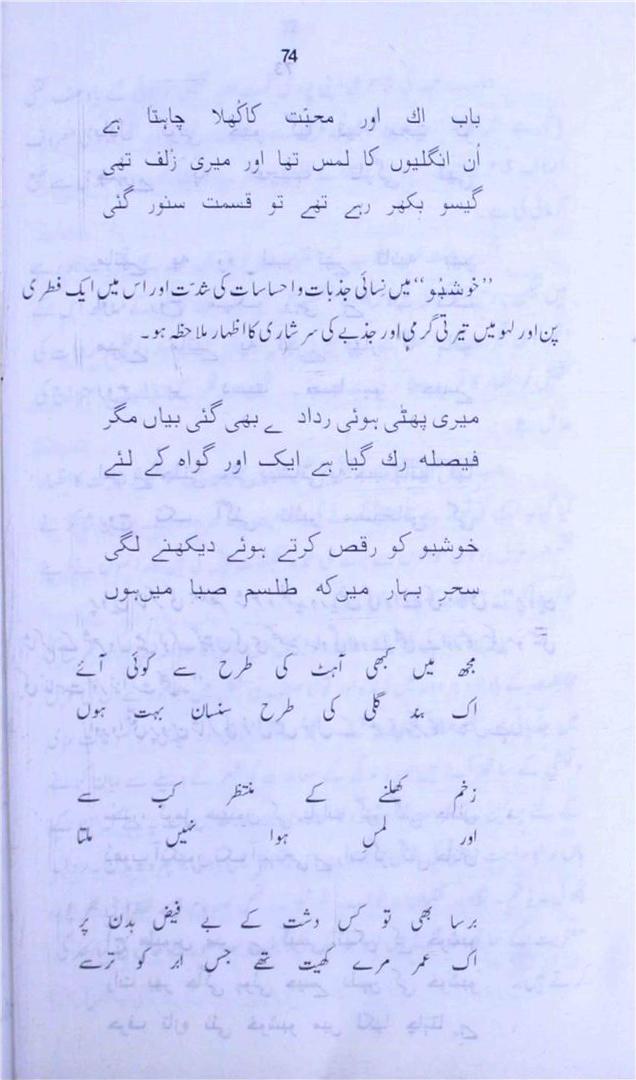 74
باب اك اور محبّت كاكُھلا چاہتا ہے
اُن انگلیوں کا لمس تھا اور میری زُلف تھی
گیسو بکھر رہے تھے تو قسمت سنور گئی
"خوشبُو" میں نِسائی جذبات و احساسات کی شدّت اور اس میں ایک فطری
پن اور لہو میں تیرتی گرمی اور جذبے کی سرشاری کا اظہار ملاحظہ ہو۔
میری پھٹی ہوئی رداد ے بھی گئی بیاں مگر
فیصلہ رك گیا ہے ایک اور گواہ کے لئے
خوشبو کو رقص کرتے ہوئے دیکھنے لگی
سحر بہار میں که طلسم صبا میں ہوں
مجھ میں کبھی آہٹ کی طرح سے کوئی آئے
اک بند گلی کی طرح سنسان بہت ہوں
زخم کھلنے کے منتظر کب سے
اور لمسِ ہوا نہیں ملتا
برسا بھی تو کس دشت کے بے فیض بدن پر
اک عمر مرے کھیت تھے جس ابر کو ترسے